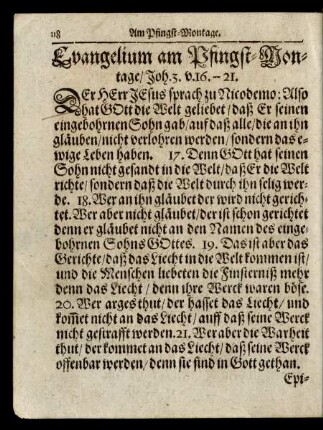 118 Am Pfingst-Montage.
Evangelium am Pfingst-Mon-
tage/ Joh. 3. v. 16. – 21.
DEr HErr JEsus sprach zu Nicodemo: Also
hat GOtt die Welt geliebet/ daß Er seinen
eingebohrnen Sohn gab/ auf daß alle/ die an ihn
gläuben/ nicht verlohren werden/ sondern das e-
wige Leben haben. 17. Denn GOtt hat seinen
Sohn nicht gesandt in die Welt/ daß Er die Welt
richte/ sondern daß die Welt durch ihn selig wer-
de. 18. Wer an ihn gläubet der wird nicht gerich-
tet. Wer aber nicht gläubet/ der ist schon gerichtet
denn er gläubet nicht an den Namen des einge-
bohrnen Sohns GOttes. 19. Das ist aber das
Gerichte/ daß das Liecht in die Welt kommen ist/
und die Menschen liebeten die Finsterniß mehr
denn das Liecht/ denn ihre Werck waren böse.
20. Wer arges thut/ der hasset das Liecht/ und
kom̃et nicht an das Liecht/ auff daß seine Werck
nicht gestrafft werden. 21. Wer aber die Warheit
thut/ der kommet an das Liecht/ daß seine Werck
offenbar werden/ denn sie sind in Gott gethan.
Epi-